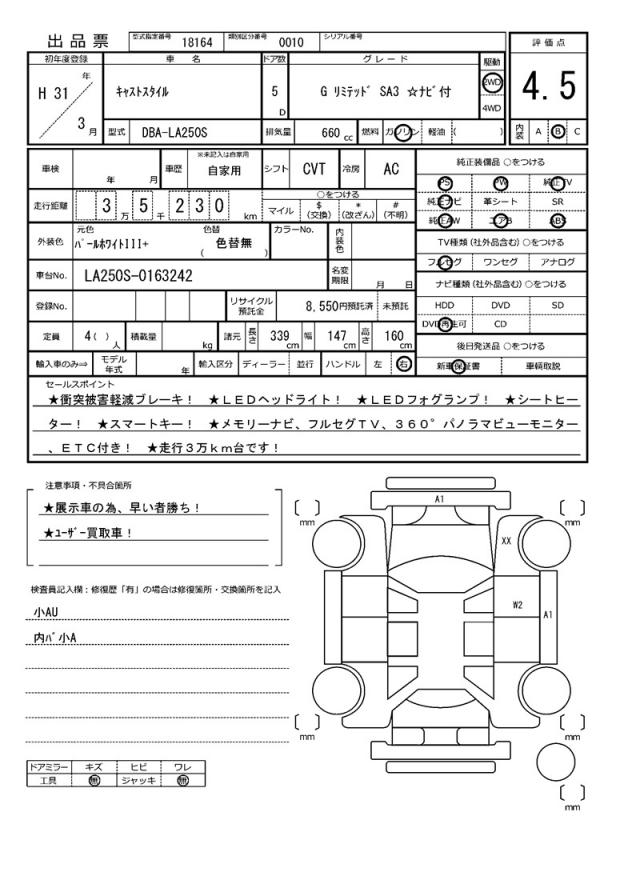 出品票 型式指定番号 18164 類別区分番号 0010 シリアル番号
初年度登録 車名 ドア数 グレード 駆動 評価点
H 31 年 3 月 キャストスタイル 5 D G リミテッド SA3 ☆ナビ付 2WD 4WD 4.5
型式 DBA-LA250S 排気量 660 cc 燃料 ガソリン 軽油 ( ) 内装 A B C
車検 年 月 車歴 ※未記入は自家用 自家用 シフト CVT 冷房 AC 純正装備品 ○をつける
PS PW 純正TV
走行距離 3 万 5 千 2 3 0 km ○をつける 純正ナビ 革シート SR
マイル $(交換) *(改ざん) #(不明) 純正AW エアB ABS
外装色 元色 パールホワイトIII+ 色替 ( 色替無 ) カラーNo. 内装色 TV種類(社外品含む)○をつける
フルセグ ワンセグ アナログ
車台No. LA250S-0163242 名変期限 月 日 ナビ種類(社外品含む)○をつける
登録No. リサイクル預託金 8,550円預託済 未預託 HDD DVD SD
DVD再生可 CD
定員 4( )人 積載量 kg 諸元 長さ 339 cm 幅 147 cm 高さ 160 cm 後日発送品 ○をつける
輸入車のみ⇒ モデル年式 年 輸入区分 ディーラー 並行 ハンドル 左 右 新車保証書 車輌取説
セールスポイント
★衝突被害軽減ブレーキ! ★LEDヘッドライト! ★LEDフォグランプ! ★シートヒー
ター! ★スマートキー! ★メモリーナビ、フルセグTV、360°パノラマビューモニター
、ETC付き! ★走行3万km台です!
注意事項・不具合箇所
★展示車の為、早い者勝ち!
★ユーザー買取車!
検査員記入欄:修復歴「有」の場合は修復箇所・交換箇所を記入
小AU
内バ小A
A1
mm mm
XX
W2
A1
mm mm
mm
ドアミラー キズ ヒビ ワレ
工具 無 ジャッキ 無